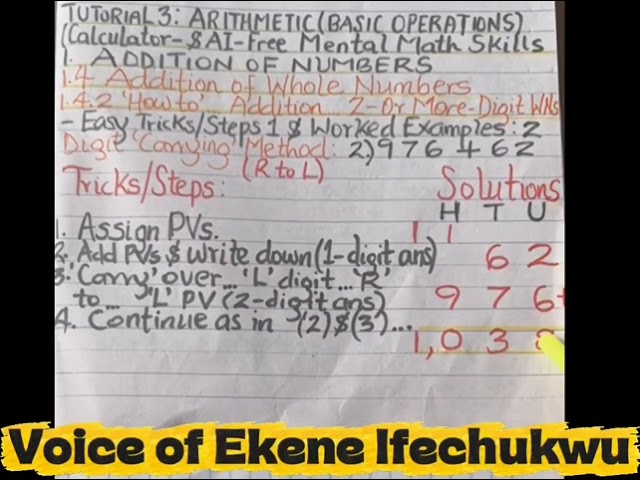 TUTORIAL 3: ARITHMETIC (BASIC OPERATIONS)
(Calculator- & AI-Free Mental Math Skills
1. ADDITION OF NUMBERS
1.4 Addition of Whole Numbers
1.4.2 'How to' Addition... 2-Or More-Digit WNs
- Easy Tricks/Steps 1 & Worked Examples: 2
Digit 'Carrying' Method: 2) 976 + 62
(R to L)
Tricks/Steps: Solutions
H T U
1. Assign PVs. 1 1
2. Add PVs & write down (1-digit ans) 6 2
3. 'Carry' over... 'L' digit... 'R'
to... 'L' PV (2-digit ans) 9 7 6+
4. Continue as in (2) & (3)...
1,0 3 8
Voice of Ekene Ifechukwu